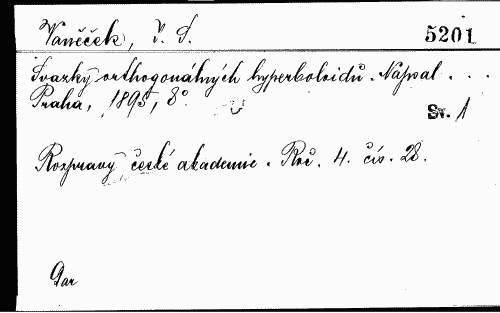 Vaněček, V. S.
5201
Svazky orthogonálných hyperboloidů. Napsal . . .
Praha, 1895, 8°.
Sv. 1
Rozpravy české akademie. Roč. 4. čís. 28.
Dar